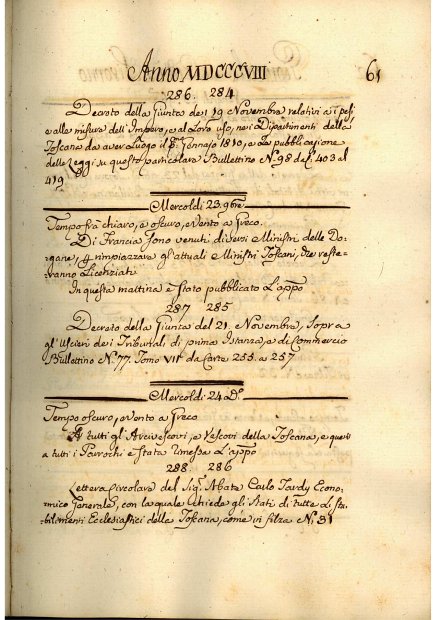 Anno MDCCCVIII 61
286. 284
Decreto della Giunta de 19 Novembre relativi a i pesi
e alle misure dell'Impero, e al Loro uso, nei Dipartimenti della
Toscana da aver Luogo il Pº. Gennajo 1810, e La pubblicazione
delle Leggi su questo particolare Bullettino N. 98 da C. 403 al
419
Mercoldì 23. 9bre
Tempo fra chiaro, e oscuro, e Vento a Greco.
Di Francia sono venuti diversi Ministri delle Do-
gane, rimpiazzare gl'attuali Ministri Toscani, che reste-
ranno Licenziati
In questa mattina è stato pubblicato L'appo
287 285
Decreto della Giunta del 21. Novembre, sopra
gl'Uscieri dei Tribunali di prima Istanza, e di Commercio
Bullettino N. 77. Tomo VII da Carte 255. a 257
Mercoldì 24 Dº.
Tempo oscuro, e Vento a Greco
A tutti gl'Arcivescovi, e Vescovi della Toscana, e questi
a tutti i Parrochi è stata rimessa L'appo
288 286
Lettera Circolare del Sigr. Abate Carlo Tardy Econo-
mico Generale, con la quale chiede gli Stati di tutte li sta-
bilimenti Ecclesiastici della Toscana, come in filza N. 31